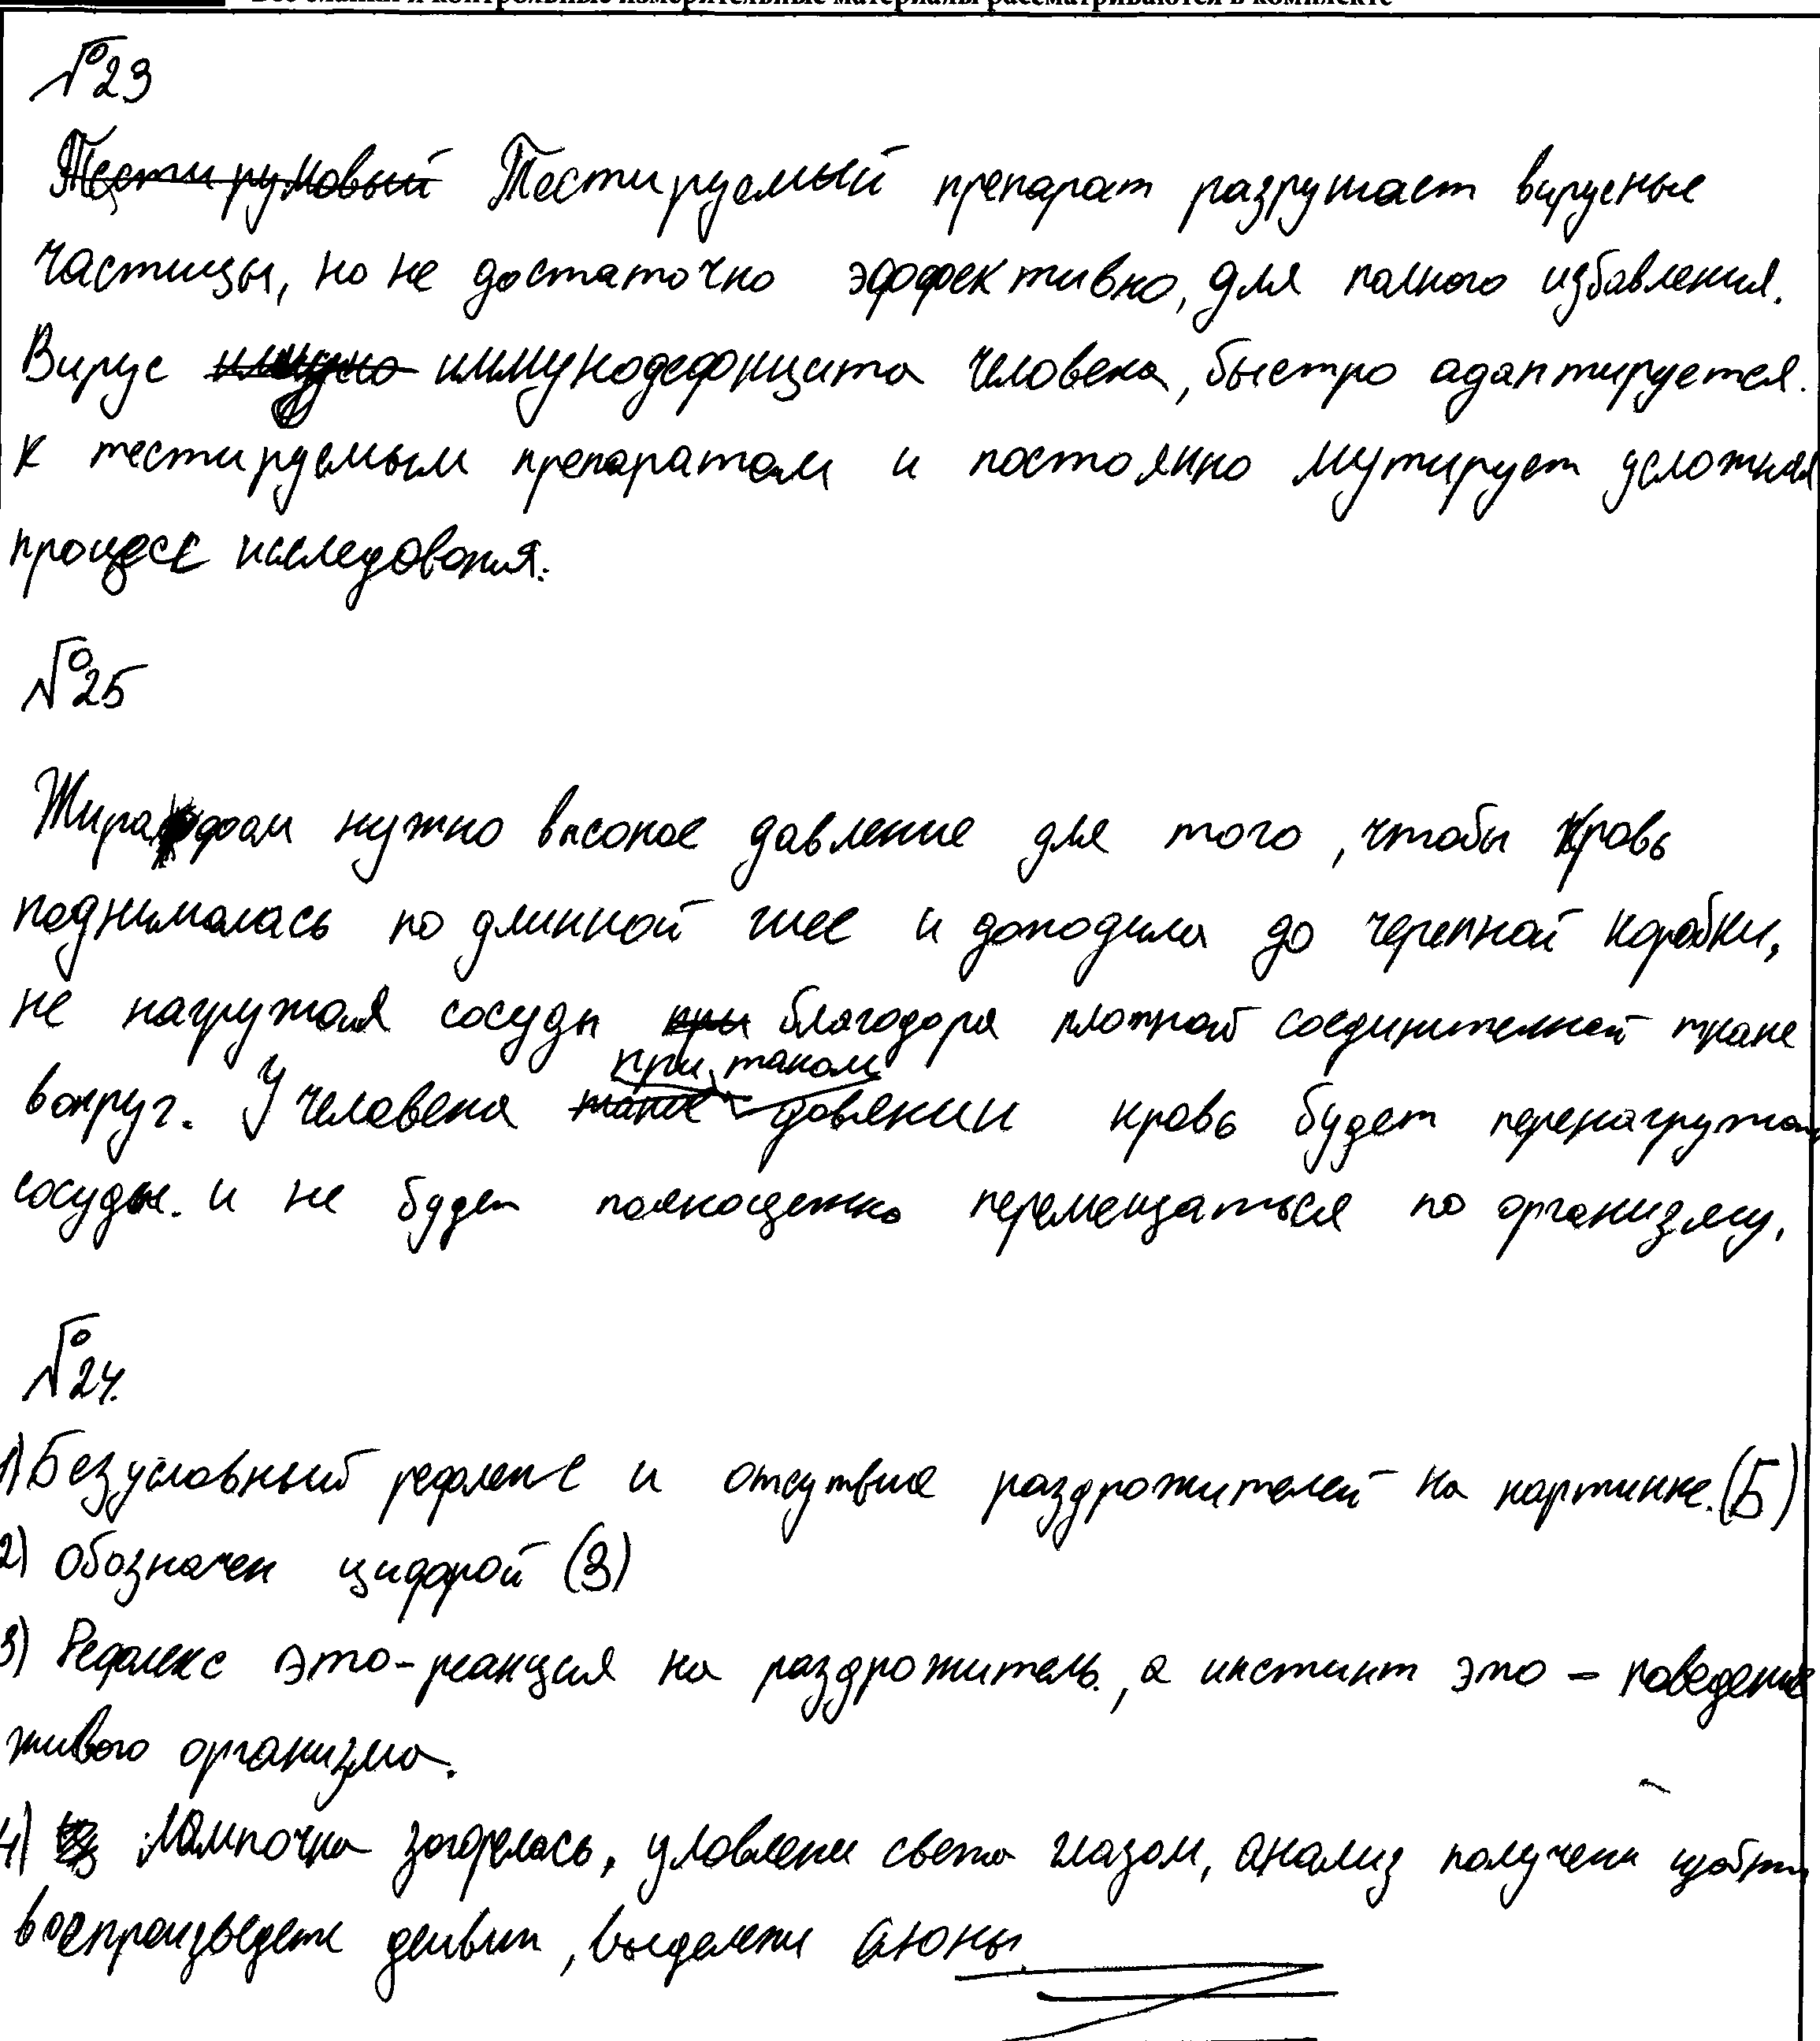 Все бланки и контрольные измерительные материалы рассматриваются в комплекте
№23
Тестируемый препарат разрушает вирусные
частицы, но не достаточно эффективно, для полного избавления.
Вирус иммунодефицита человека, быстро адаптируется.
к тестируемым препаратам и постоянно мутирует усложняя
процесс исследования.
№25
Жирафам нужно высокое давление для того, чтобы кровь
поднималась по длинной шее и доходила до черепной коробки,
не нагружая сосуды благодоря плотной соединителной ткане
вокруг. У человека при таком давлении кровь будет перенагружать
сосуды. и не будет полноценно перемещаться по организму.
№24.
1) Безусловный рефлекс и отсутвие раздрожителей на картинке. (Б)
2) Обозначен цифрой (3)
3) Рефлекс это-реакция на раздрожитель, а инстинт это - поведение
живого организма.
4) Лампочка загорелась, уловлени света глазом, анализ получени
выделени слюны